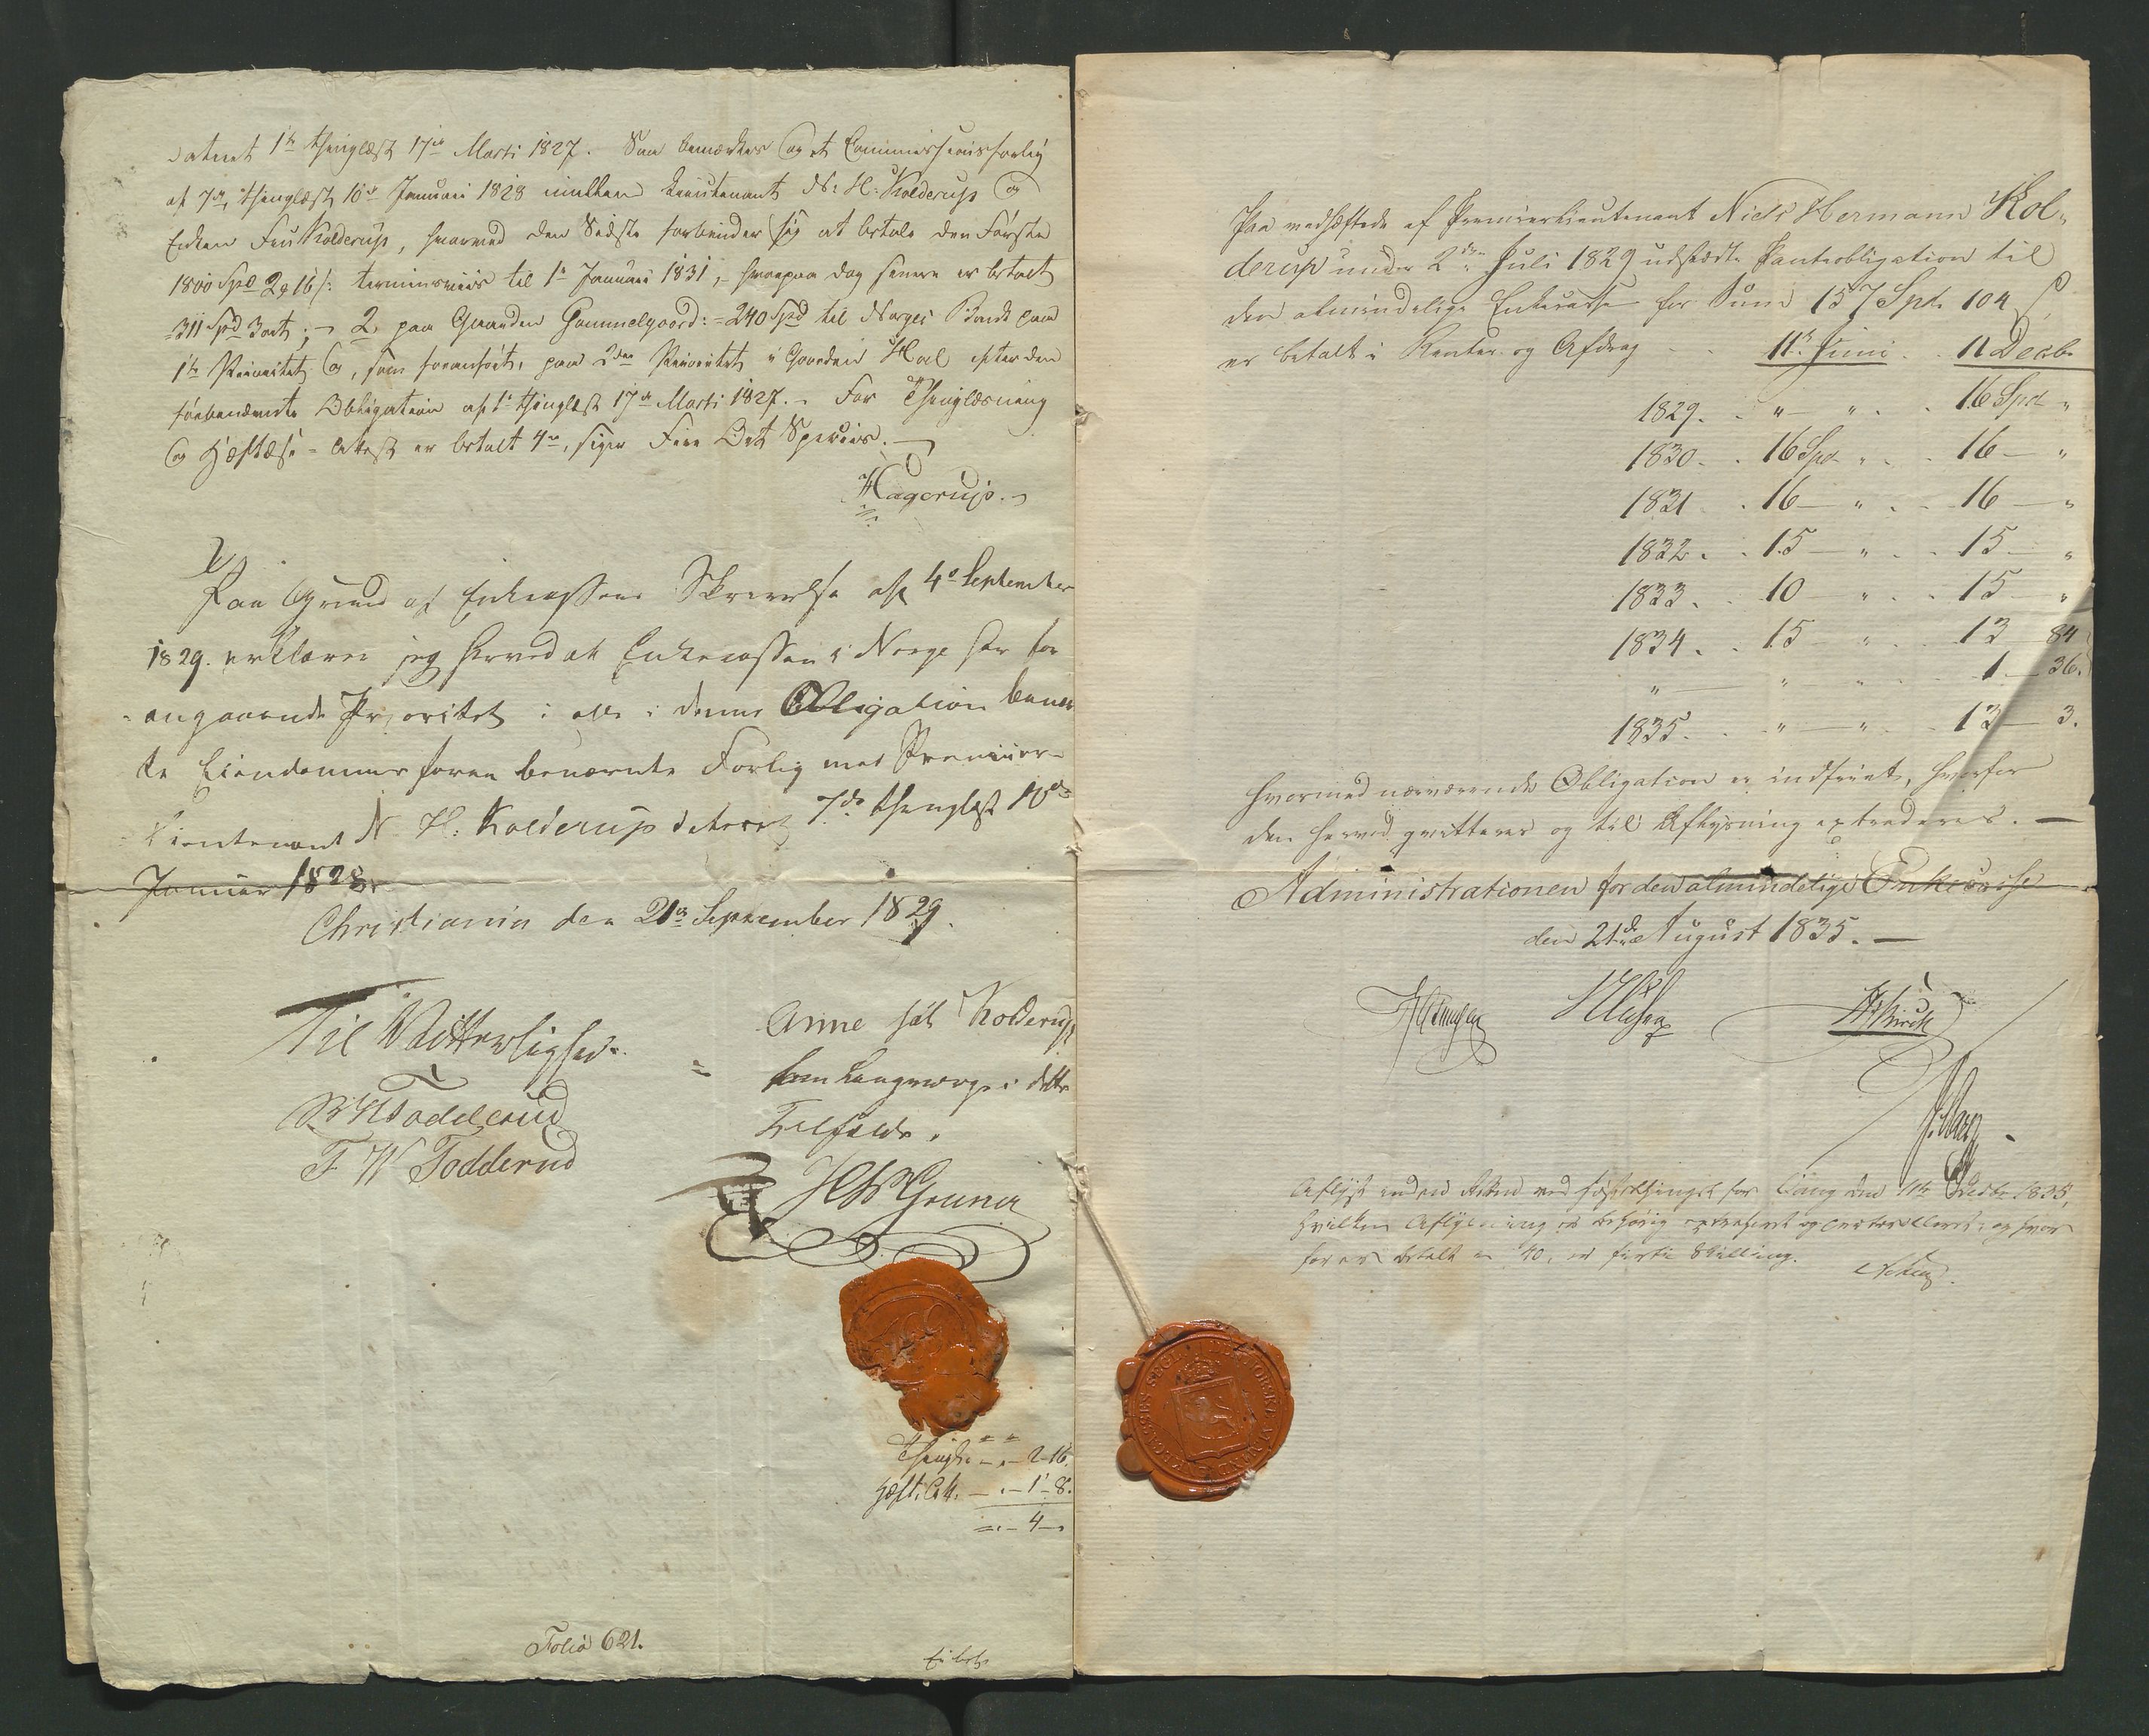 datert 1te thinglæst 17de Marti 1827. Saa bemærkes og et Commissionsforlig
af 7de, thinglæst 10de Januari 1828 imellem Lieutenant N: H: Kolderup og
Enken Fru Kolderup, hvorved den Sidste forbinder sig at betale den Første
1800 Spd 2 ort 16 s: terminsviis til 1te Januari 1831, hvorpaa dog senere er betalt
311 Spd 3 ort; - 2, paa Gaarden Gammelgaard: 240 Spd til Norges Bank paa
1te Prioritet og, som foranført, paa 2den Prioritet i Gaarden Hal efter den
forbenævnte Obligation af 1te thinglæst 17de Marti 1827. - For Thinglæsning
og Hæftelse-Attest er betalt 4 ort, siger Fire Ort Species. -
Hagerup.
Paa Grund af Enkecassens Skrivelse af 4de September
1829. erklærer jeg herved at Enkecassen i Norge har for
angaaende Prioritet i alle i denne Obligation benævn
te Eiendomme foran benævnte Forlig med Premier-
Lieutenant N. H. Kolderup dateret 7de thinglæst 10de
Januar 1828.
Christiania den 21de September 1829.
Til Vitterlighed
Anne sal Kolderup
som Laugværge i dette
Tilfælde.
Todderud
F W Todderud
H W Gruner
Thingl. - " - 2 - 16.
Hæft. Att. - " - 1 - 8.
" - 4 -
Folio 621.
Paa vedhæftede af Premierlieutenant Niels Hermann Kol-
derup under 2den Juli 1829 udstædte Pantobligation til
den almindelige Enkecasse for Sum 157 Spd. 104 s
er betalt i Renter og Afdrag 11te Juni 11 Decbr
1829. " " 16 Spd "
1830. 16 Spd " 16 "
1831 16 " 16 "
1832. 15 " 15 "
1833. 10 " 15 "
1834. 15 " 13 84
" " " 1 36.
1835. " " 13 3.
hvormed nærværende Obligation er indfriet, hvorfor
den herved qvitteres og til Aflysning extraderes. -
Administrationen for den almindelige Enkecasse
den 21de August 1835. -
Aflyst inden Retten ved Høstethinget for den 11te Decbr 1835,
hvilken Aflysning er behørig extraheret og
for er betalt 40, er førti Skilling.